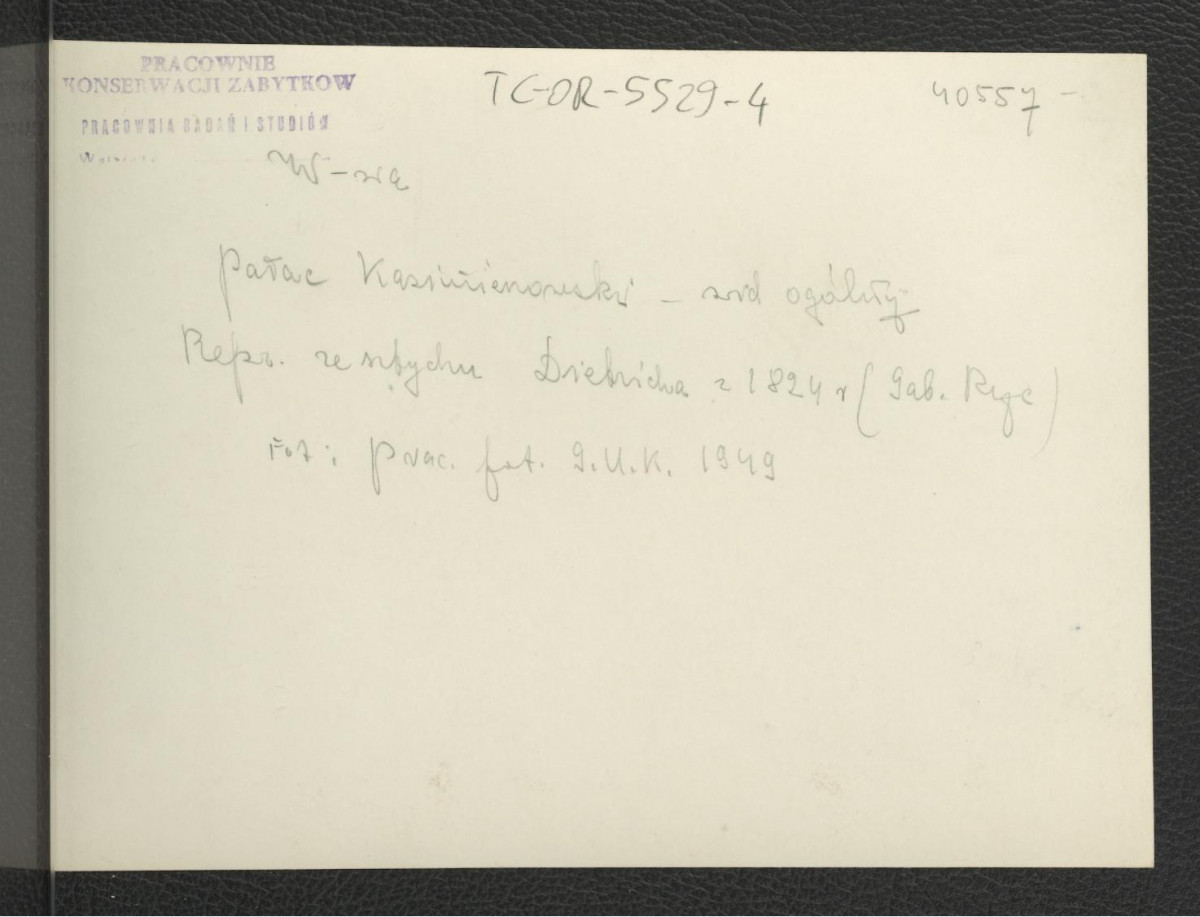 PRACOWNIE
KONSERWACJI ZABYTKOW
PRACOWNIA BADAŃ I STUDIÓW
TC-OR-5529-4
40557
W-wa
Pałac Kazimierowski – wid ogólny
Repr. ze sztychu Dietricha z 1824 r (Gab. Ryc)
Fot: Prac. fot. G.U.K. 1949